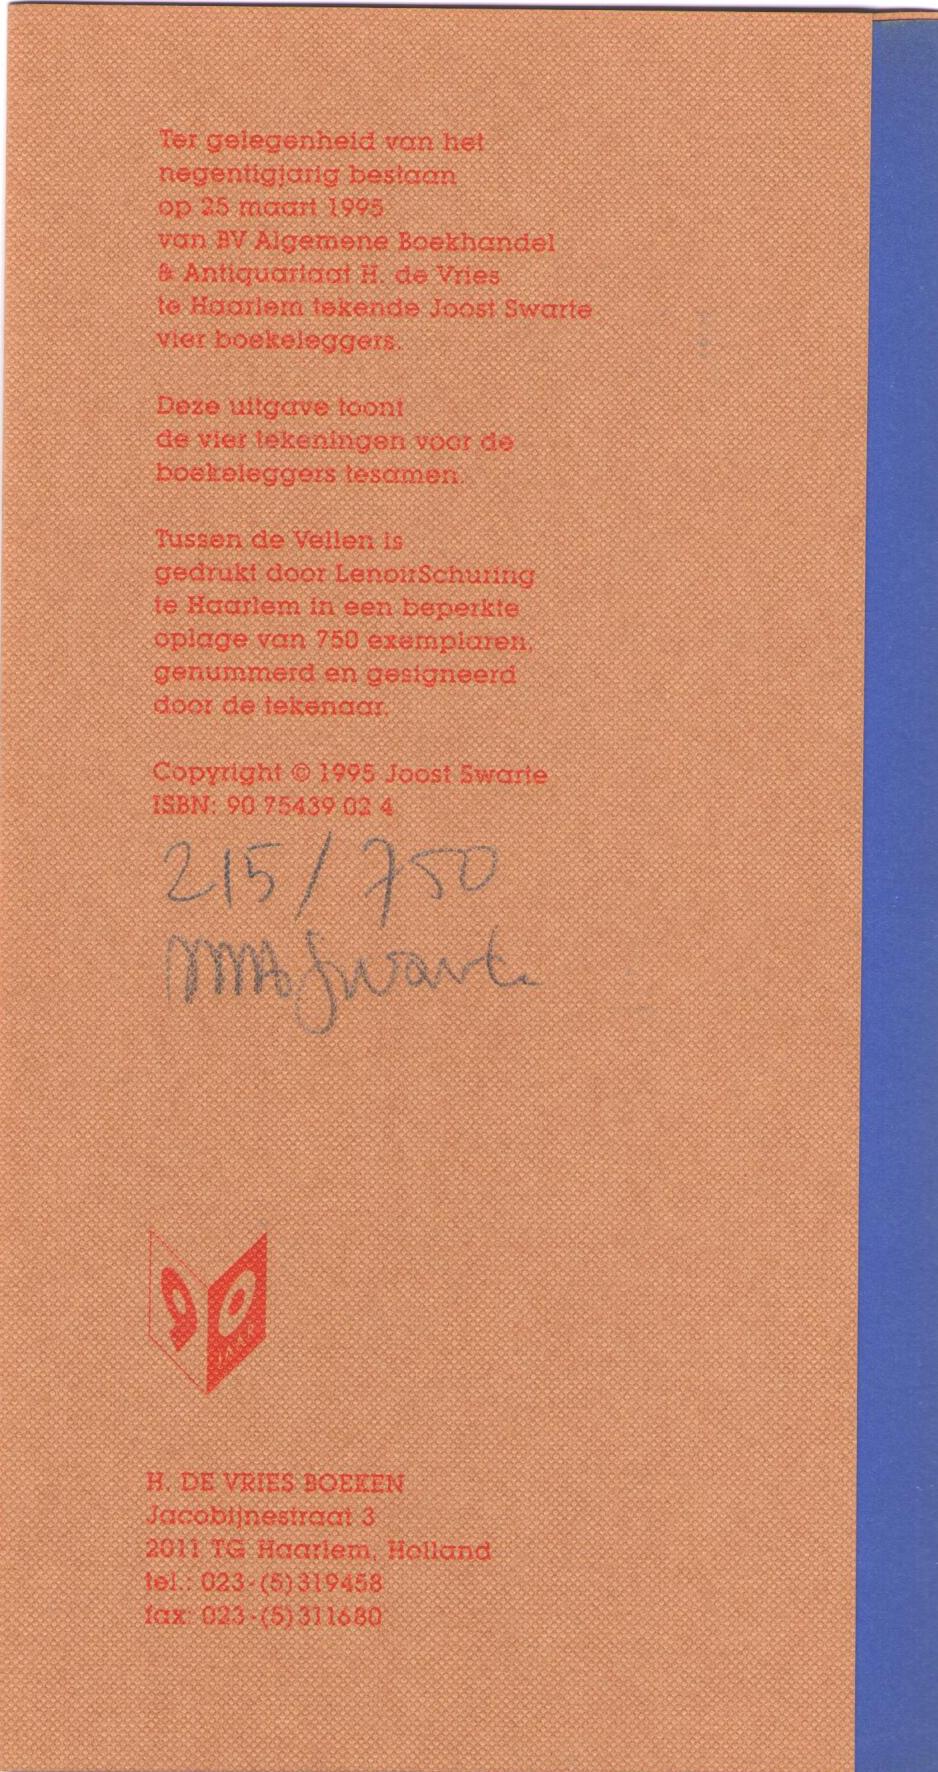 Ter gelegenheid van het
negentigjarig bestaan
op 25 maart 1995
van BV Algemene Boekhandel
& Antiquariaat H. de Vries
te Haarlem tekende Joost Swarte
vier boekeleggers.
Deze uitgave toont
de vier tekeningen voor de
boekeleggers tesamen.
Tussen de Vellen is
gedrukt door LenoirSchuring
te Haarlem in een beperkte
oplage van 750 exemplaren,
genummerd en gesigneerd
door de tekenaar.
Copyright © 1995 Joost Swarte
ISBN: 90 75439 02 4
215/750
Swarte
90
JAAR
H. DE VRIES BOEKEN
Jacobijnestraat 3
2011 TG Haarlem, Holland
tel.: 023-(5)319458
fax: 023-(5)311680